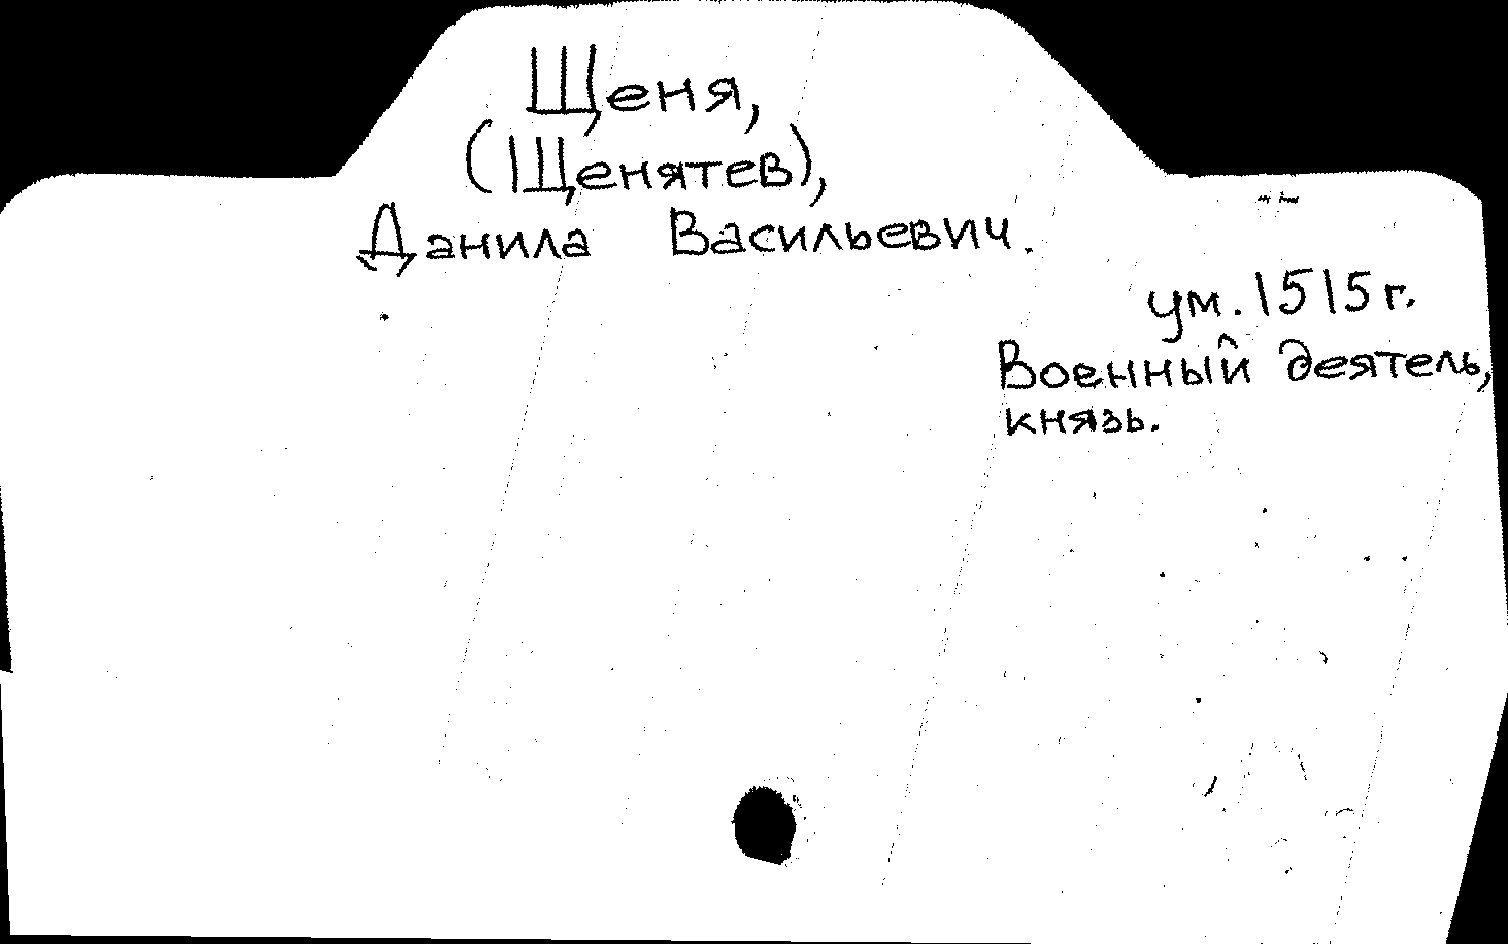 Щеня,
(Щенятев),
Данила Васильевич.
ум. 1515 г.
Военный деятель,
князь.